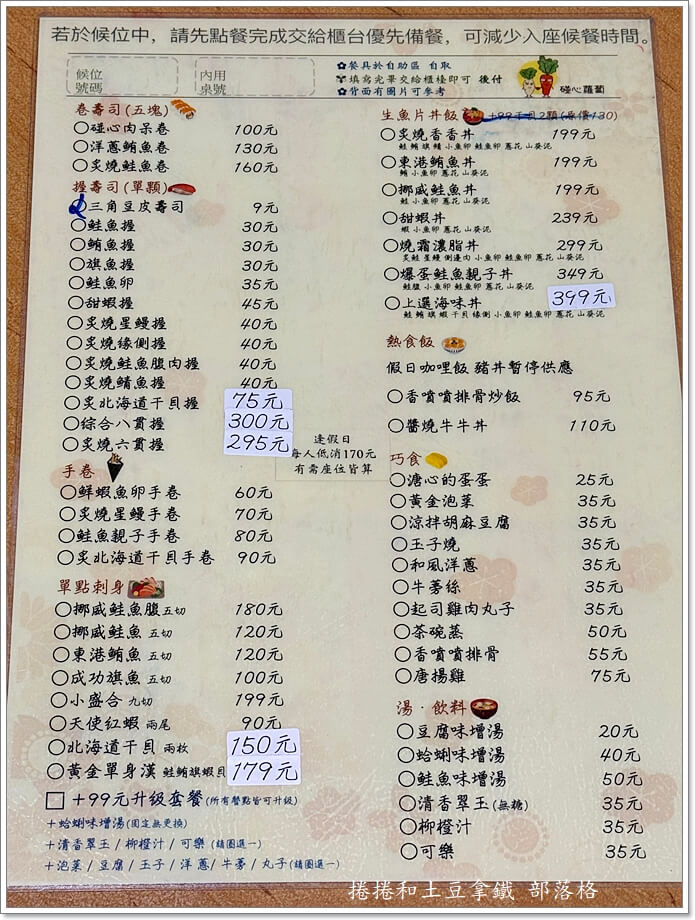 若於候位中，請先點餐完成交給櫃台優先備餐，可減少入座候餐時間。
候位號碼
內用桌號
✿餐具於自助區 自取
填寫完畢交給櫃檯即可 後付
✿背面有圖片可參考
碰心蘿蔔
卷壽司(五塊)
○碰心肉呆卷 100元
○洋蔥鮪魚卷 130元
○炙燒鮭魚卷 160元
握壽司(單顆)
○三角豆皮壽司 9元
○鮭魚握 30元
○鮪魚握 30元
○旗魚握 30元
○鮭魚卵 35元
○甜蝦握 45元
○炙燒星鰻握 40元
○炙燒緣側握 40元
○炙燒鮭魚腹肉握 40元
○炙燒鯖魚握 40元
○炙北海道干貝握 75元
○綜合八貫握 300元
○炙燒六貫握 295元
手卷
○鮮蝦魚卵手卷 60元
○炙燒星鰻手卷 70元
○鮭魚親子手卷 80元
○炙北海道干貝手卷 90元
單點刺身
○挪威鮭魚腹 五切 180元
○挪威鮭魚 五切 120元
○東港鮪魚 五切 120元
○成功旗魚 五切 100元
○小盛合 九切 199元
○天使紅蝦 兩尾 90元
○北海道干貝 兩枚 150元
○黃金單身漢 鮭鮪旗蝦貝 179元
□ +99元升级套餐(所有餐點皆可升級)
+蛤蜊味增湯(固定無更換)
+清香翠玉 / 柳橙汁 / 可樂 (請圈選一)
+泡菜 / 豆腐 / 玉子 / 洋蔥 / 牛蒡 / 丸子(請圈選一)
逢假日
每人低消170元
有需座位皆算
生魚片丼飯
○炙燒香香丼 199元
鮭 鮪 旗 鯖 小魚卵 鮭魚卵 蔥花 山葵泥
○東港鮪魚丼 199元
鮪 小魚卵 蔥花 山葵泥
○挪威鮭魚丼 199元
鮭 小魚卵 鮭魚卵 蔥花 山葵泥
○甜蝦丼 239元
蝦 小魚卵 蔥花 山葵泥
○燒霜濃脂丼 299元
炙鮭 星鰻 側邊肉 小魚卵 鮭魚卵 蔥花 山葵泥
○爆蛋鮭魚親子丼 349元
鮭腹 小魚卵 鮭魚卵 蔥花 山葵泥
○上選海味丼 399元
鮭 鮪 旗 蝦 干貝 緣側 小魚卵 鮭魚卵 蔥花 山葵泥
熱食飯
假日咖哩飯 豬丼暫停供應
○香噴噴排骨炒飯 95元
○醬燒牛牛丼 110元
巧食
○溏心的蛋蛋 25元
○黃金泡菜 35元
○涼拌胡麻豆腐 35元
○玉子燒 35元
○和風洋蔥 35元
○牛蒡絲 35元
○起司雞肉丸子 35元
○茶碗蒸 50元
○香噴噴排骨 55元
○唐揚雞 75元
湯．飲料
○豆腐味增湯 20元
○蛤蜊味增湯 40元
○鮭魚味增湯 50元
○清香翠玉(無糖) 35元
○柳橙汁 35元
○可樂 35元
捲捲和土豆拿鐵 部落格